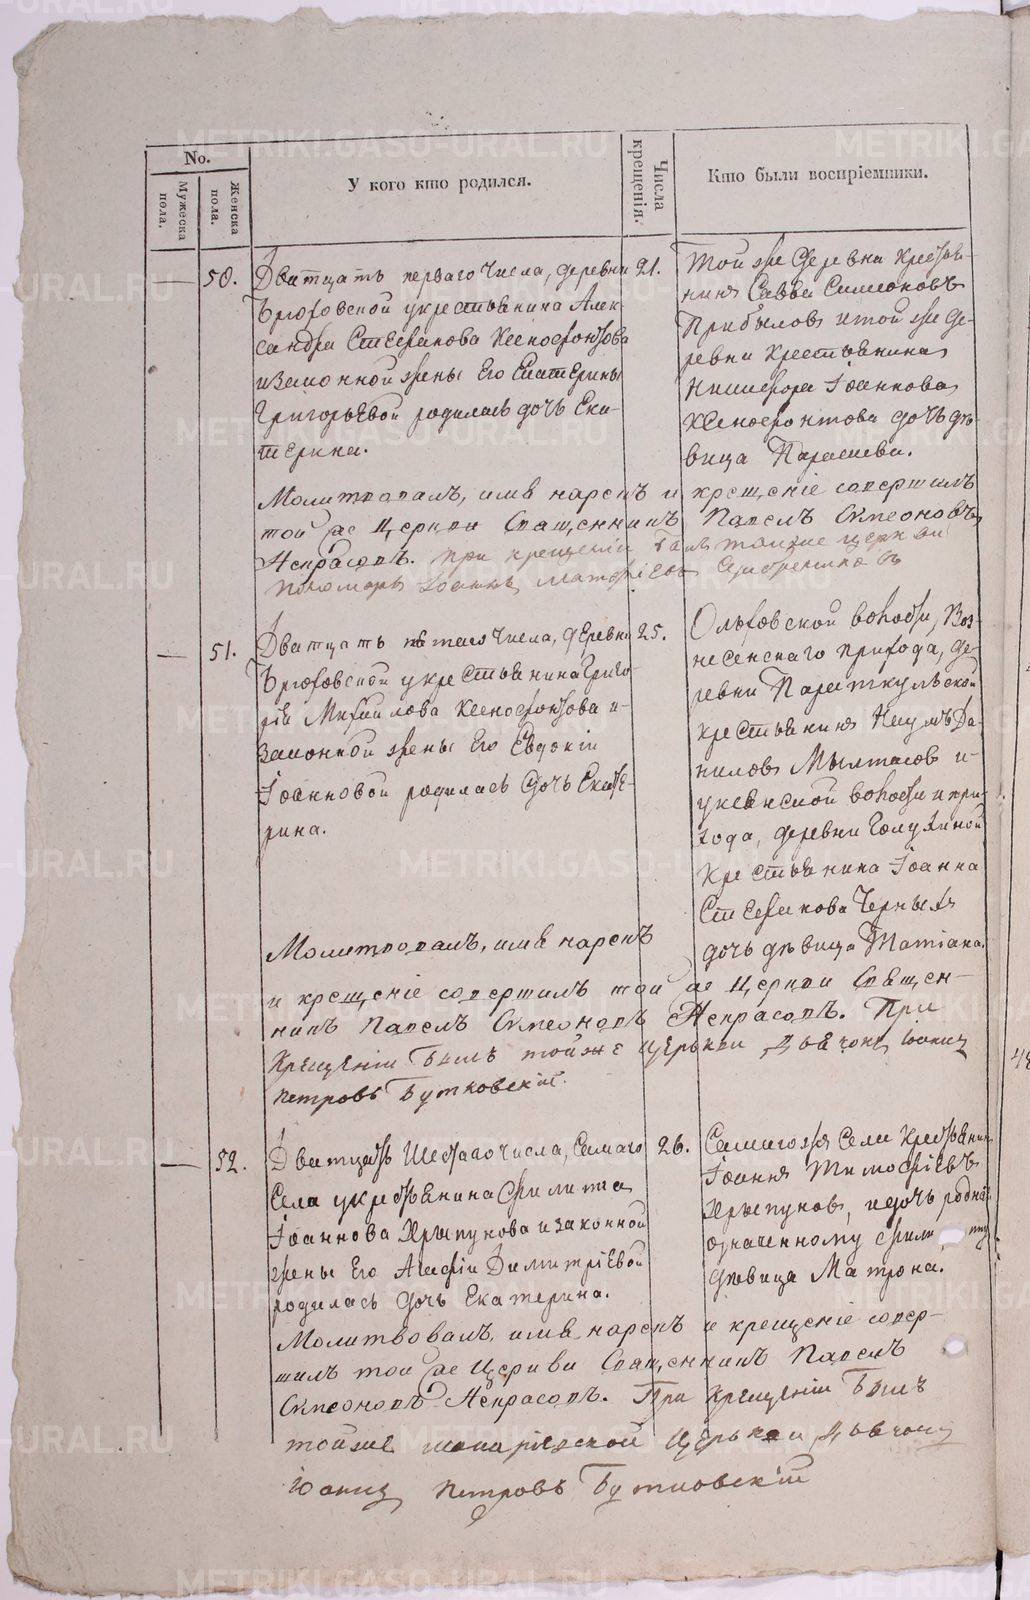 No.
Мужеска пола.
Женска пола.
У кого кто родился.
Числа крещенія.
Кто были воспріемники.
50.
Дватцать перваго числа, деревни
Брюховской у крестьянина Алек-
сандра Стефанова Ксенофонтова
и законной жены его Екатерины
Григорьевой родилась дочь Ека-
терина.
21.
Той же деревни крестья-
нинъ Савва Симеоновъ
Прибыловъ и той же де-
ревни крестьянина
Никифора Іоаннова
Ксенофонтова дочь дѣ-
вица Параскева.
Молитвовалъ, имя нарекъ и крещеніе совершилъ
той же Церкви Священникъ Павелъ Симеоновъ
Некрасовъ. При крещеніи былъ тойже церкви
пономарь Іоаннъ Матфіевъ
51.
Дватцать пятаго числа, деревни
Брюховской у крестьянина Григо-
рія Михайлова Ксенофонтова и
законной жены его Евдокіи
Іоанновой родилась дочь Екате-
рина.
25.
Ольховской волости, Воз-
несенскаго прихода, де-
ревни Параткульской
крестьянинъ Наумъ Да-
ниловъ Мылтасовъ и
уксянской волости и при-
хода, деревни Голухиной
крестьянина Іоанна
Стефанова Черныхъ
дочь дѣвица Татіана.
Молитвовалъ, имя нарекъ
и крещеніе совершилъ той же Церкви Священ-
никъ Павелъ Симеоновъ Некрасовъ. При
крещеніи былъ тойже церькви дьячокъ Іоаннъ
Петровъ Бутковскій.
52.
Дватцать шестаго числа, самаго
села у крестьянина Филиппа
Іоаннова Хрыпунова и законной
жены его Агафіи Димитріевой
родилась дочь Екатерина.
26.
Самагожъ села крестьянинъ
Іоаннъ Тимофѣевъ
Хрыпуновъ, и дочь родная
означенному
дѣвица Матрона.
Молитвовалъ, имя нарекъ и крещеніе совер-
шилъ той же Церкви Священникъ Павелъ
Симеоновъ Некрасовъ. При крещеніи былъ
тойже церькви дьячокъ
Іоаннъ Петровъ Бутковскій
METRIKI.GASO-URAL.RU